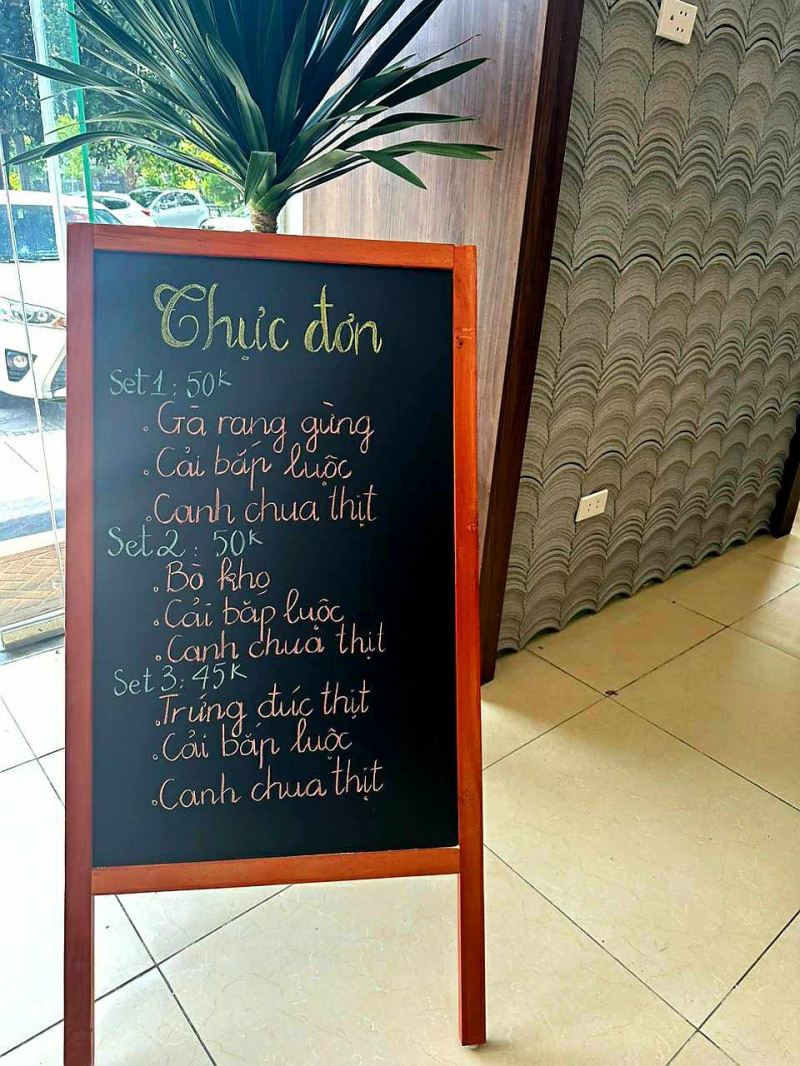 Thực đơn
Set 1: 50k
. Gà rang gừng
. Cải bắp luộc
. Canh chua thịt
Set 2: 50k
. Bò kho
. Cải bắp luộc
. Canh chua thịt
Set 3: 45k
. Trứng đúc thịt
. Cải bắp luộc
. Canh chua thịt